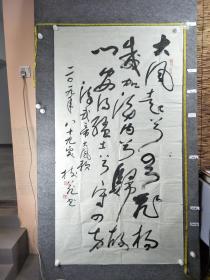 大風起兮雲飛揚
威加海内兮歸故
鄉安得猛士兮守四方
大風歌
二〇〇九年八十九岁